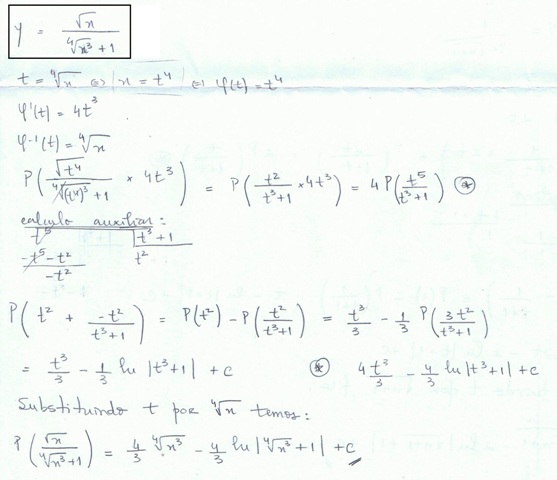 y = √x / (∜x³ + 1)
t = ∜x ⇔ |x = t⁴| ⇔ φ(t) = t⁴
φ'(t) = 4t³
φ⁻¹(t) = ∜x
P(√t⁴ / (∜(t⁴)³ + 1) × 4t³) = P(t² / (t³+1) × 4t³) = 4 P(t⁵ / (t³+1)) ⊛
calculo auxiliar:
t⁵ | t³ + 1
-t⁵ - t² | t²
-t²
P(t² + -t² / (t³+1)) = P(t²) - P(t² / (t³+1)) = t³/3 - 1/3 P(3t² / (t³+1))
= t³/3 - 1/3 ln |t³+1| + c ⊛ 4 t³/3 - 4/3 ln |t³+1| + c
Substituindo t por ∜x temos:
P(√x / (∜x³ + 1)) = 4/3 ∜x³ - 4/3 ln |∜x³ + 1| + c